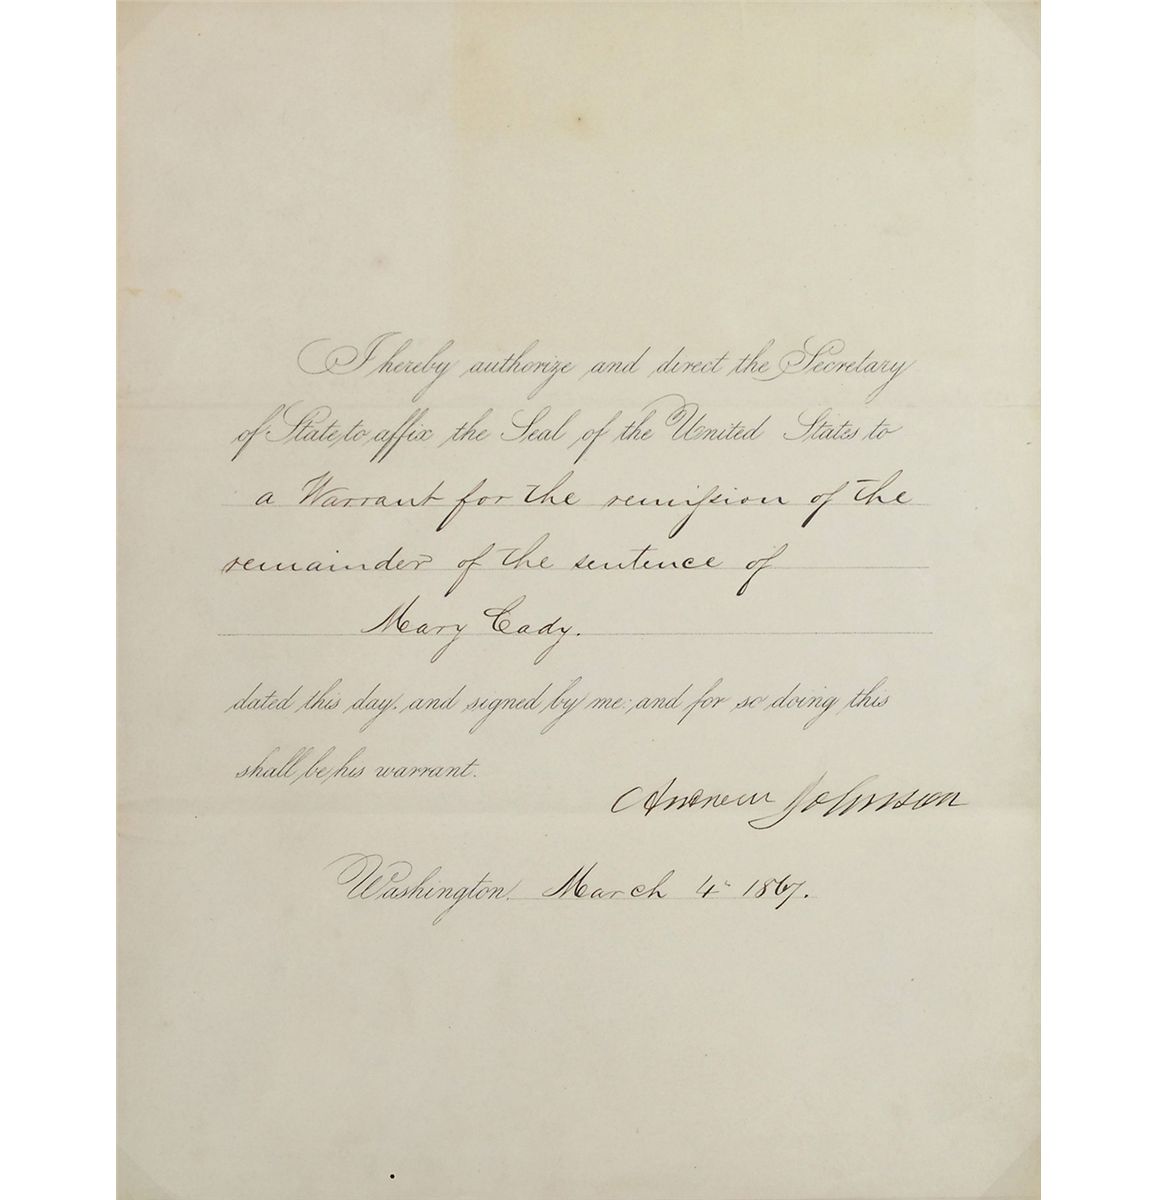 I hereby authorize and direct the Secretary
of State to affix the Seal of the United States to
a Warrant for the remission of the
remainder of the sentence of
Mary Cady.
dated this day, and signed by me: and for so doing this
shall be his warrant.
Andrew Johnson
Washington, March 4" 1867.